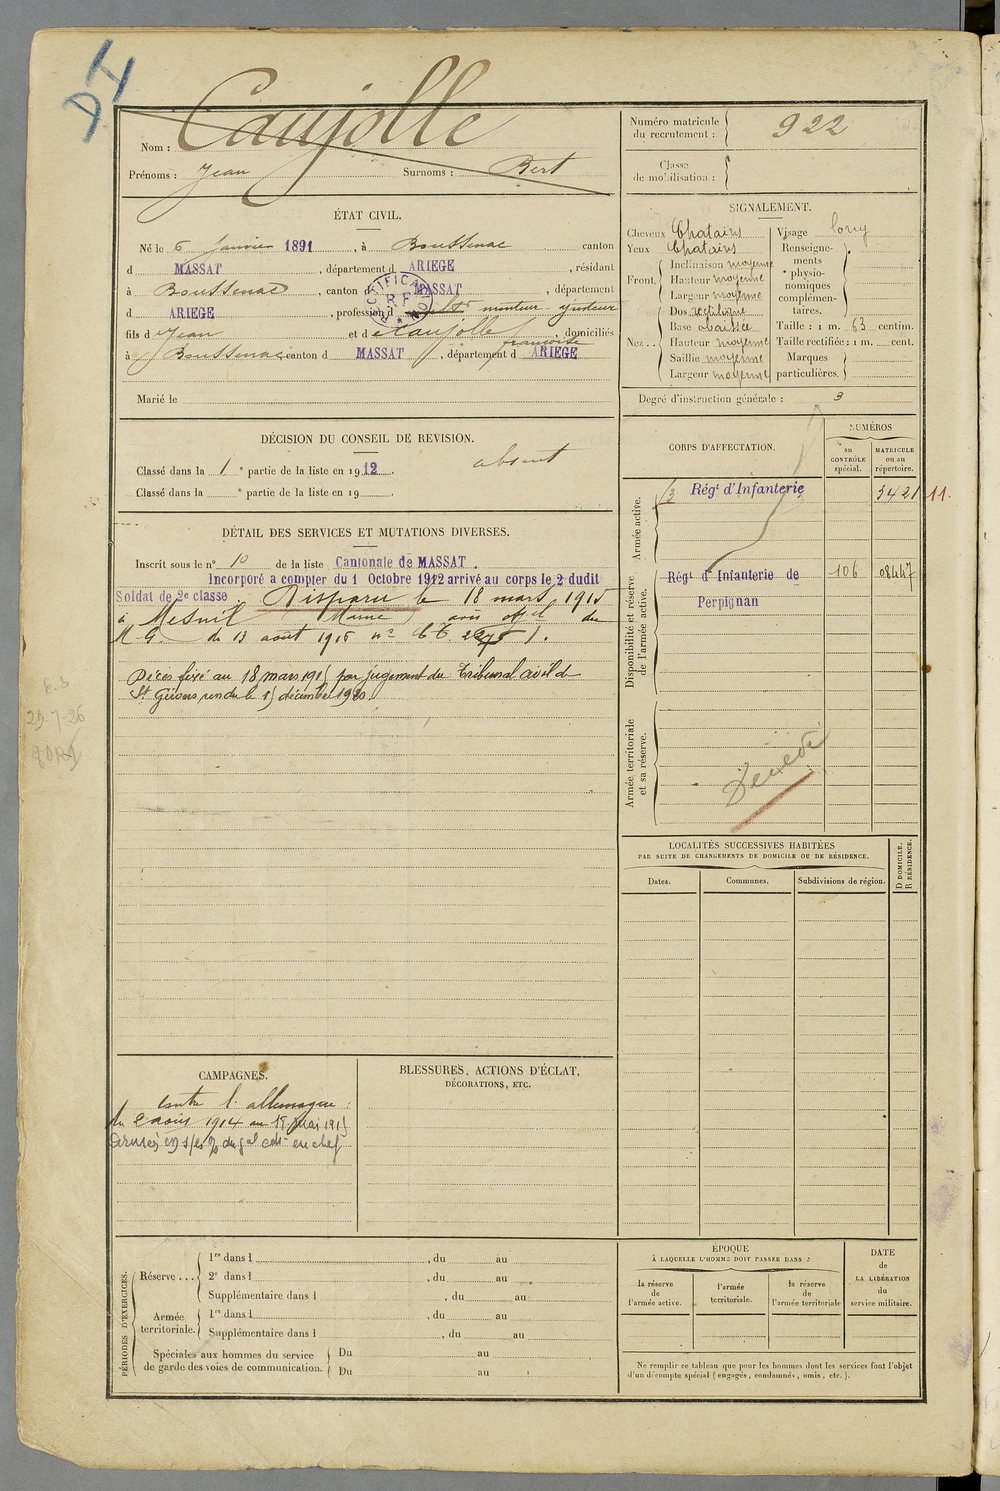 Nom : Caujolle
Prénoms : Jean Surnoms : Bert
Numéro matricule du recrutement : 922
Classe de mobilisation :
ÉTAT CIVIL.
Né le 6 Janvier 1891, à Boussenac canton
d MASSAT, département d ARIEGE, résidant
à Boussenac, canton d MASSAT, département
d ARIEGE, profession d monteur ajusteur
RECTIFICATION R F
fils d Jean et d Caujolle françoise, domiciliés
à Boussenac canton d MASSAT, département d ARIEGE
Marié le
SIGNALEMENT.
Cheveux Chatains
Yeux Chatains
Front. Inclinaison moyenne
Hauteur moyenne
Largeur moyenne
Nez.. Dos rectiligne
Base abaissée
Hauteur moyenne
Saillie moyenne
Largeur moyenne
Visage long
Renseignements physionomiques complémentaires.
Taille : 1 m. 63 centim.
Taille rectifiée : 1 m. cent.
Marques particulières.
Degré d'instruction générale : 3
DÉCISION DU CONSEIL DE REVISION.
Classé dans la 1e partie de la liste en 1912. absent
Classé dans la e partie de la liste en 19 .
DÉTAIL DES SERVICES ET MUTATIONS DIVERSES.
Inscrit sous le n° 10 de la liste Cantonale de MASSAT.
Incorporé a compter du 1 Octobre 1912 arrivé au corps le 2 dudit
Soldat de 2e classe. Disparu le 18 mars 1915
à Mesnil (Marne) avis offel du
M G. du 13 août 1915 n°
Décès fixé au 18 mars 1915 par jugement du Tribunal civil de
St Girons rendu le 15 décembre 1920.
CORPS D'AFFECTATION.
NUMÉROS
au CONTRÔLE spécial.
MATRICULE ou au répertoire.
Armée active.
Régt d'Infanterie 3421 11.
Disponibilité et réserve de l'armée active.
Régt d'Infanterie de 106 08447
Perpignan
Armée territoriale et sa réserve.
Décédé
LOCALITÉS SUCCESSIVES HABITÉES
PAR SUITE DE CHANGEMENTS DE DOMICILE OU DE RÉSIDENCE.
Dates. Communes. Subdivisions de région. D DOMICILE. R RÉSIDENCE.
CAMPAGNES.
Contre l'allemagne :
du 2 août 1914 au 18 mai 1915
BLESSURES, ACTIONS D'ÉCLAT,
DÉCORATIONS, ETC.
PÉRIODES D'EXERCICES.
Réserve... 1re dans l , du au
2e dans l , du au
Supplémentaire dans l , du au
Armée territoriale. 1re dans l , du au
Supplémentaire dans l , du au
Spéciales aux hommes du service de garde des voies de communication. Du au
Du au
ÉPOQUE
À LAQUELLE L'HOMME DOIT PASSER DANS :
la réserve de l'armée active.
l'armée territoriale.
la réserve de l'armée territoriale
DATE de LA LIBÉRATION du service militaire.
Ne remplir ce tableau que pour les hommes dont les services font l'objet
d'un décompte spécial (engagés, condamnés, omis, etc.).